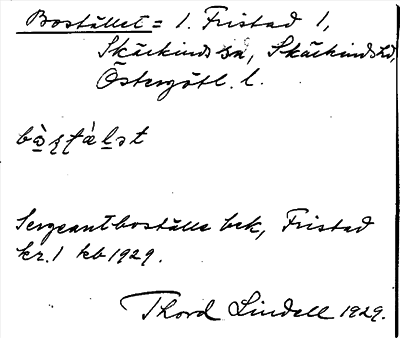 Bostället = 1. Fristad 1,
Skärkinds sn, Skärkinds hd,
Östergötl. l.
Sergeantboställe bek, Fristad
kr. 1 kb 1929.
Thord Lindell 1929.